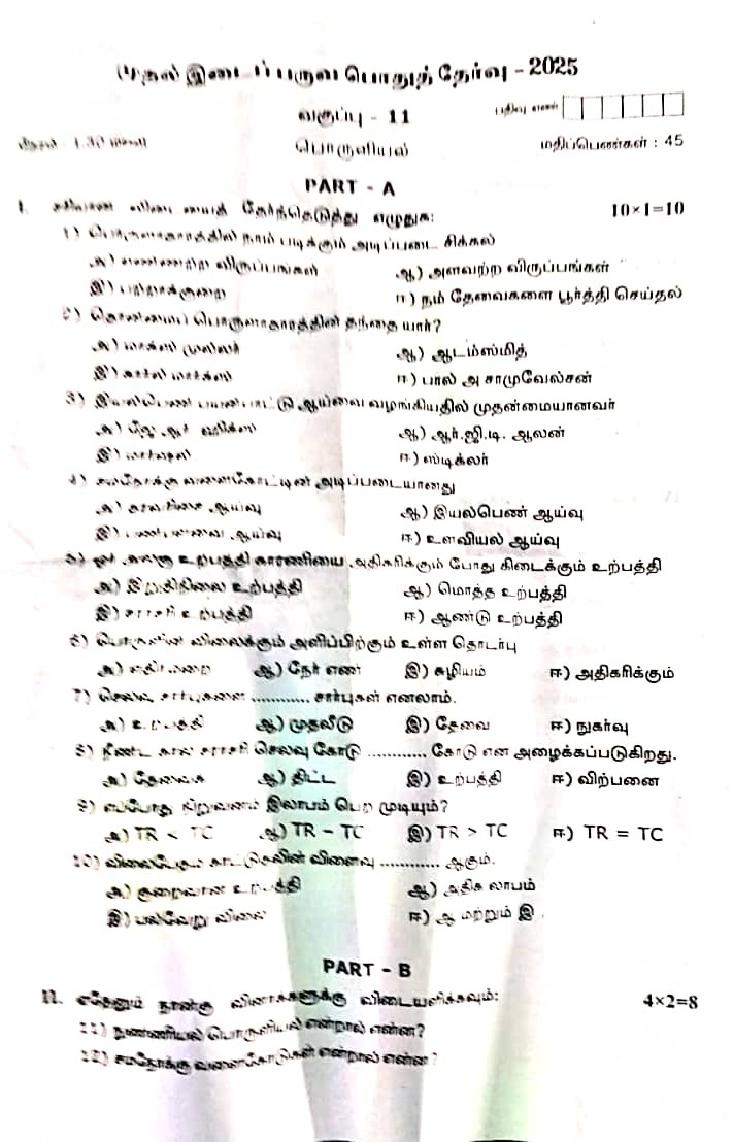 முதல் இடைப்பருவ பொதுத் தேர்வு - 2025
வகுப்பு - 11 பதிவு எண்
நேரம் : 1.30 மணி பொருளியல் மதிப்பெண்கள் : 45
PART - A
I. சரியான விடையைத் தேர்ந்தெடுத்து எழுதுக: 10×1=10
1) பொருளாதாரத்தில் நாம் படிக்கும் அடிப்படை சிக்கல்
அ) எண்ணற்ற விருப்பங்கள் ஆ) அளவற்ற விருப்பங்கள்
இ) பற்றாக்குறை ஈ) நம் தேவைகளை பூர்த்தி செய்தல்
2) தொன்மைப் பொருளாதாரத்தின் தந்தை யார்?
அ) மாக்ஸ் முல்லர் ஆ) ஆடம்ஸ்மித்
இ) கார்ல் மார்க்ஸ் ஈ) பால் அ சாமுவேல்சன்
3) இயல்பெண் பயன்பாட்டு ஆய்வை வழங்கியதில் முதன்மையானவர்
அ) ஜே ஆர் ஹிக்ஸ் ஆ) ஆர்.ஜி.டி. ஆலன்
இ) மார்ஷல் ஈ) ஸ்டிக்லர்
4) சமநோக்கு வளைகோட்டின் அடிப்படையானது
அ) தரவரிசை ஆய்வு ஆ) இயல்பெண் ஆய்வு
இ) பண்பளவை ஆய்வு ஈ) உளவியல் ஆய்வு
5) ஓர் அலகு உற்பத்தி காரணியை அதிகரிக்கும் போது கிடைக்கும் உற்பத்தி
அ) இறுதிநிலை உற்பத்தி ஆ) மொத்த உற்பத்தி
இ) சராசரி உற்பத்தி ஈ) ஆண்டு உற்பத்தி
6) பொருளின் விலைக்கும் அளிப்பிற்கும் உள்ள தொடர்பு
அ) எதிர்மறை ஆ) நேர் எண் இ) சுழியம் ஈ) அதிகரிக்கும்
7) செலவு சார்புகளை ............ சார்புகள் எனலாம்.
அ) உற்பத்தி ஆ) முதலீடு இ) தேவை ஈ) நுகர்வு
8) நீண்ட கால சராசரி செலவு கோடு ............ கோடு என அழைக்கப்படுகிறது.
அ) தேவை ஆ) திட்ட இ) உற்பத்தி ஈ) விற்பனை
9) எப்போது நிறுவனம் இலாபம் பெற முடியும்?
அ) TR < TC ஆ) TR – TC இ) TR > TC ஈ) TR = TC
10) விலைபேதம் காட்டுதலின் விளைவு ............ ஆகும்.
அ) குறைவான உற்பத்தி ஆ) அதிக லாபம்
இ) பல்வேறு விலை ஈ) ஆ மற்றும் இ
PART - B
II. எதேனும் நான்கு வினாக்களுக்கு விடையளிக்கவும்: 4×2=8
11) நுண்ணியல் பொருளியல் என்றால் என்ன?
12) சமநோக்கு வளைகோடுகள் என்றால் என்ன?